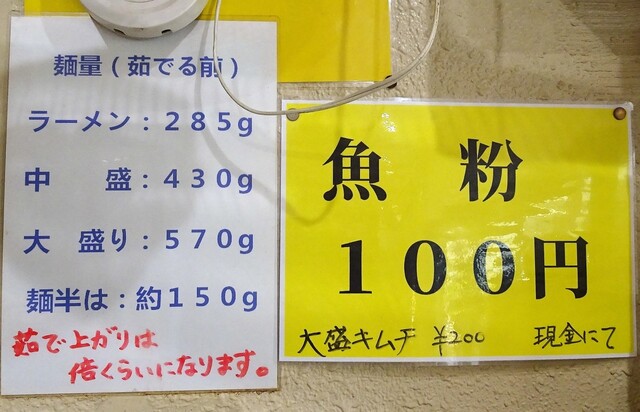 麺量(茹でる前)
ラーメン:285g
中　盛:430g
大　盛り:570g
麺半は:約150g
茹で上がりは
倍くらいになります。
魚　粉
100円
大盛キムチ ¥200　現金にて